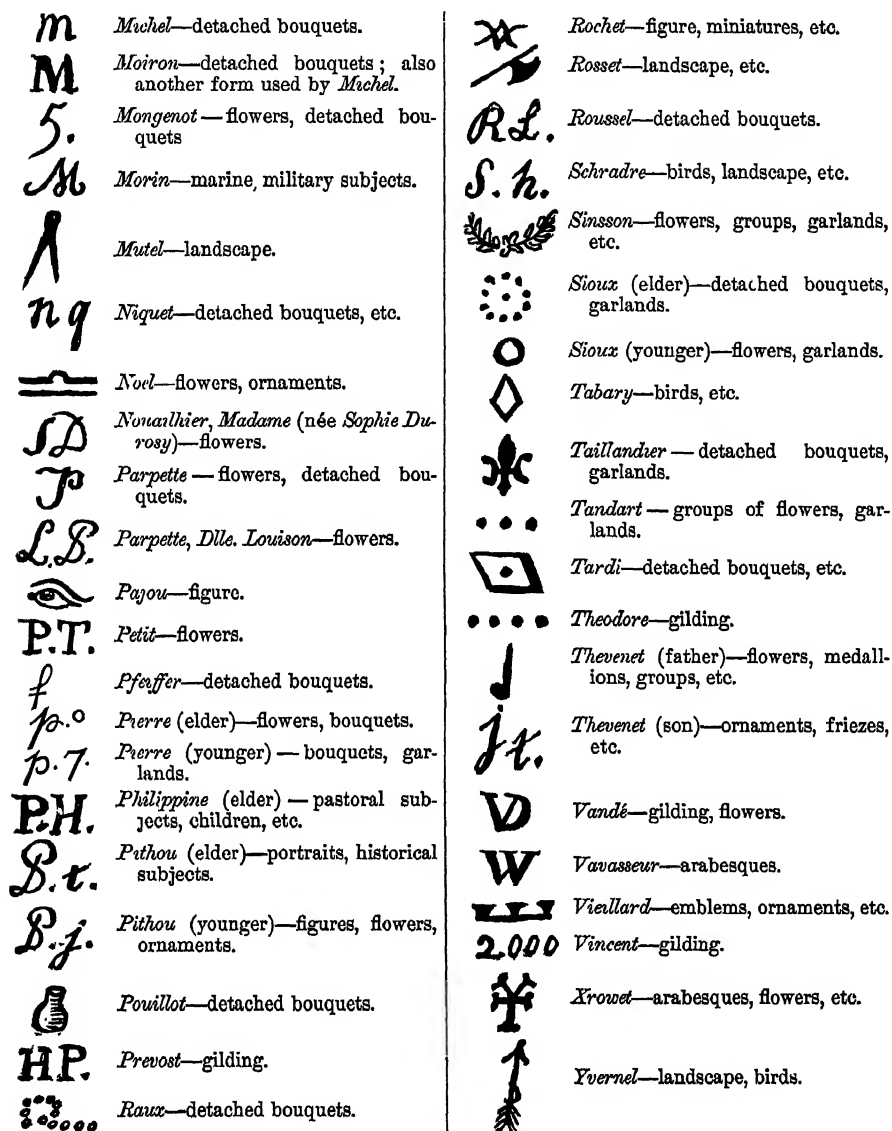 m Michel—detached bouquets.
M Moiron—detached bouquets; also
another form used by Michel.
5. Mongenot—flowers, detached bou-
quets
M Morin—marine, military subjects.
Mutel—landscape.
n q Niquet—detached bouquets, etc.
Noel—flowers, ornaments.
SD Nouailhier, Madame (née Sophie Du-
rosy)—flowers.
P Parpette—flowers, detached bou-
quets.
L.B. Parpette, Dlle. Louison—flowers.
Pajou—figure.
P.T. Petit—flowers.
f Pfeiffer—detached bouquets.
p.o Pierre (elder)—flowers, bouquets.
p.7. Pierre (younger)—bouquets, gar-
lands.
P.H. Philippine (elder)—pastoral sub-
jects, children, etc.
P.t. Pithou (elder)—portraits, historical
subjects.
P.j. Pithou (younger)—figures, flowers,
ornaments.
Pouillot—detached bouquets.
H.P. Prevost—gilding.
Raux—detached bouquets.
Rochet—figure, miniatures, etc.
Rosset—landscape, etc.
R L. Roussel—detached bouquets.
S.h. Schradre—birds, landscape, etc.
Sinsson—flowers, groups, garlands,
etc.
Sioux (elder)—detached bouquets,
garlands.
Sioux (younger)—flowers, garlands.
Tabary—birds, etc.
Taillandier—detached bouquets,
garlands.
Tandart—groups of flowers, gar-
lands.
Tardi—detached bouquets, etc.
Theodore—gilding.
Thevenet (father)—flowers, medall-
ions, groups, etc.
jt. Thevenet (son)—ornaments, friezes,
etc.
VD Vandé—gilding, flowers.
W Vavasseur—arabesques.
Vieillard—emblems, ornaments, etc.
2.000 Vincent—gilding.
Xrowet—arabesques, flowers, etc.
Yvernel—landscape, birds.